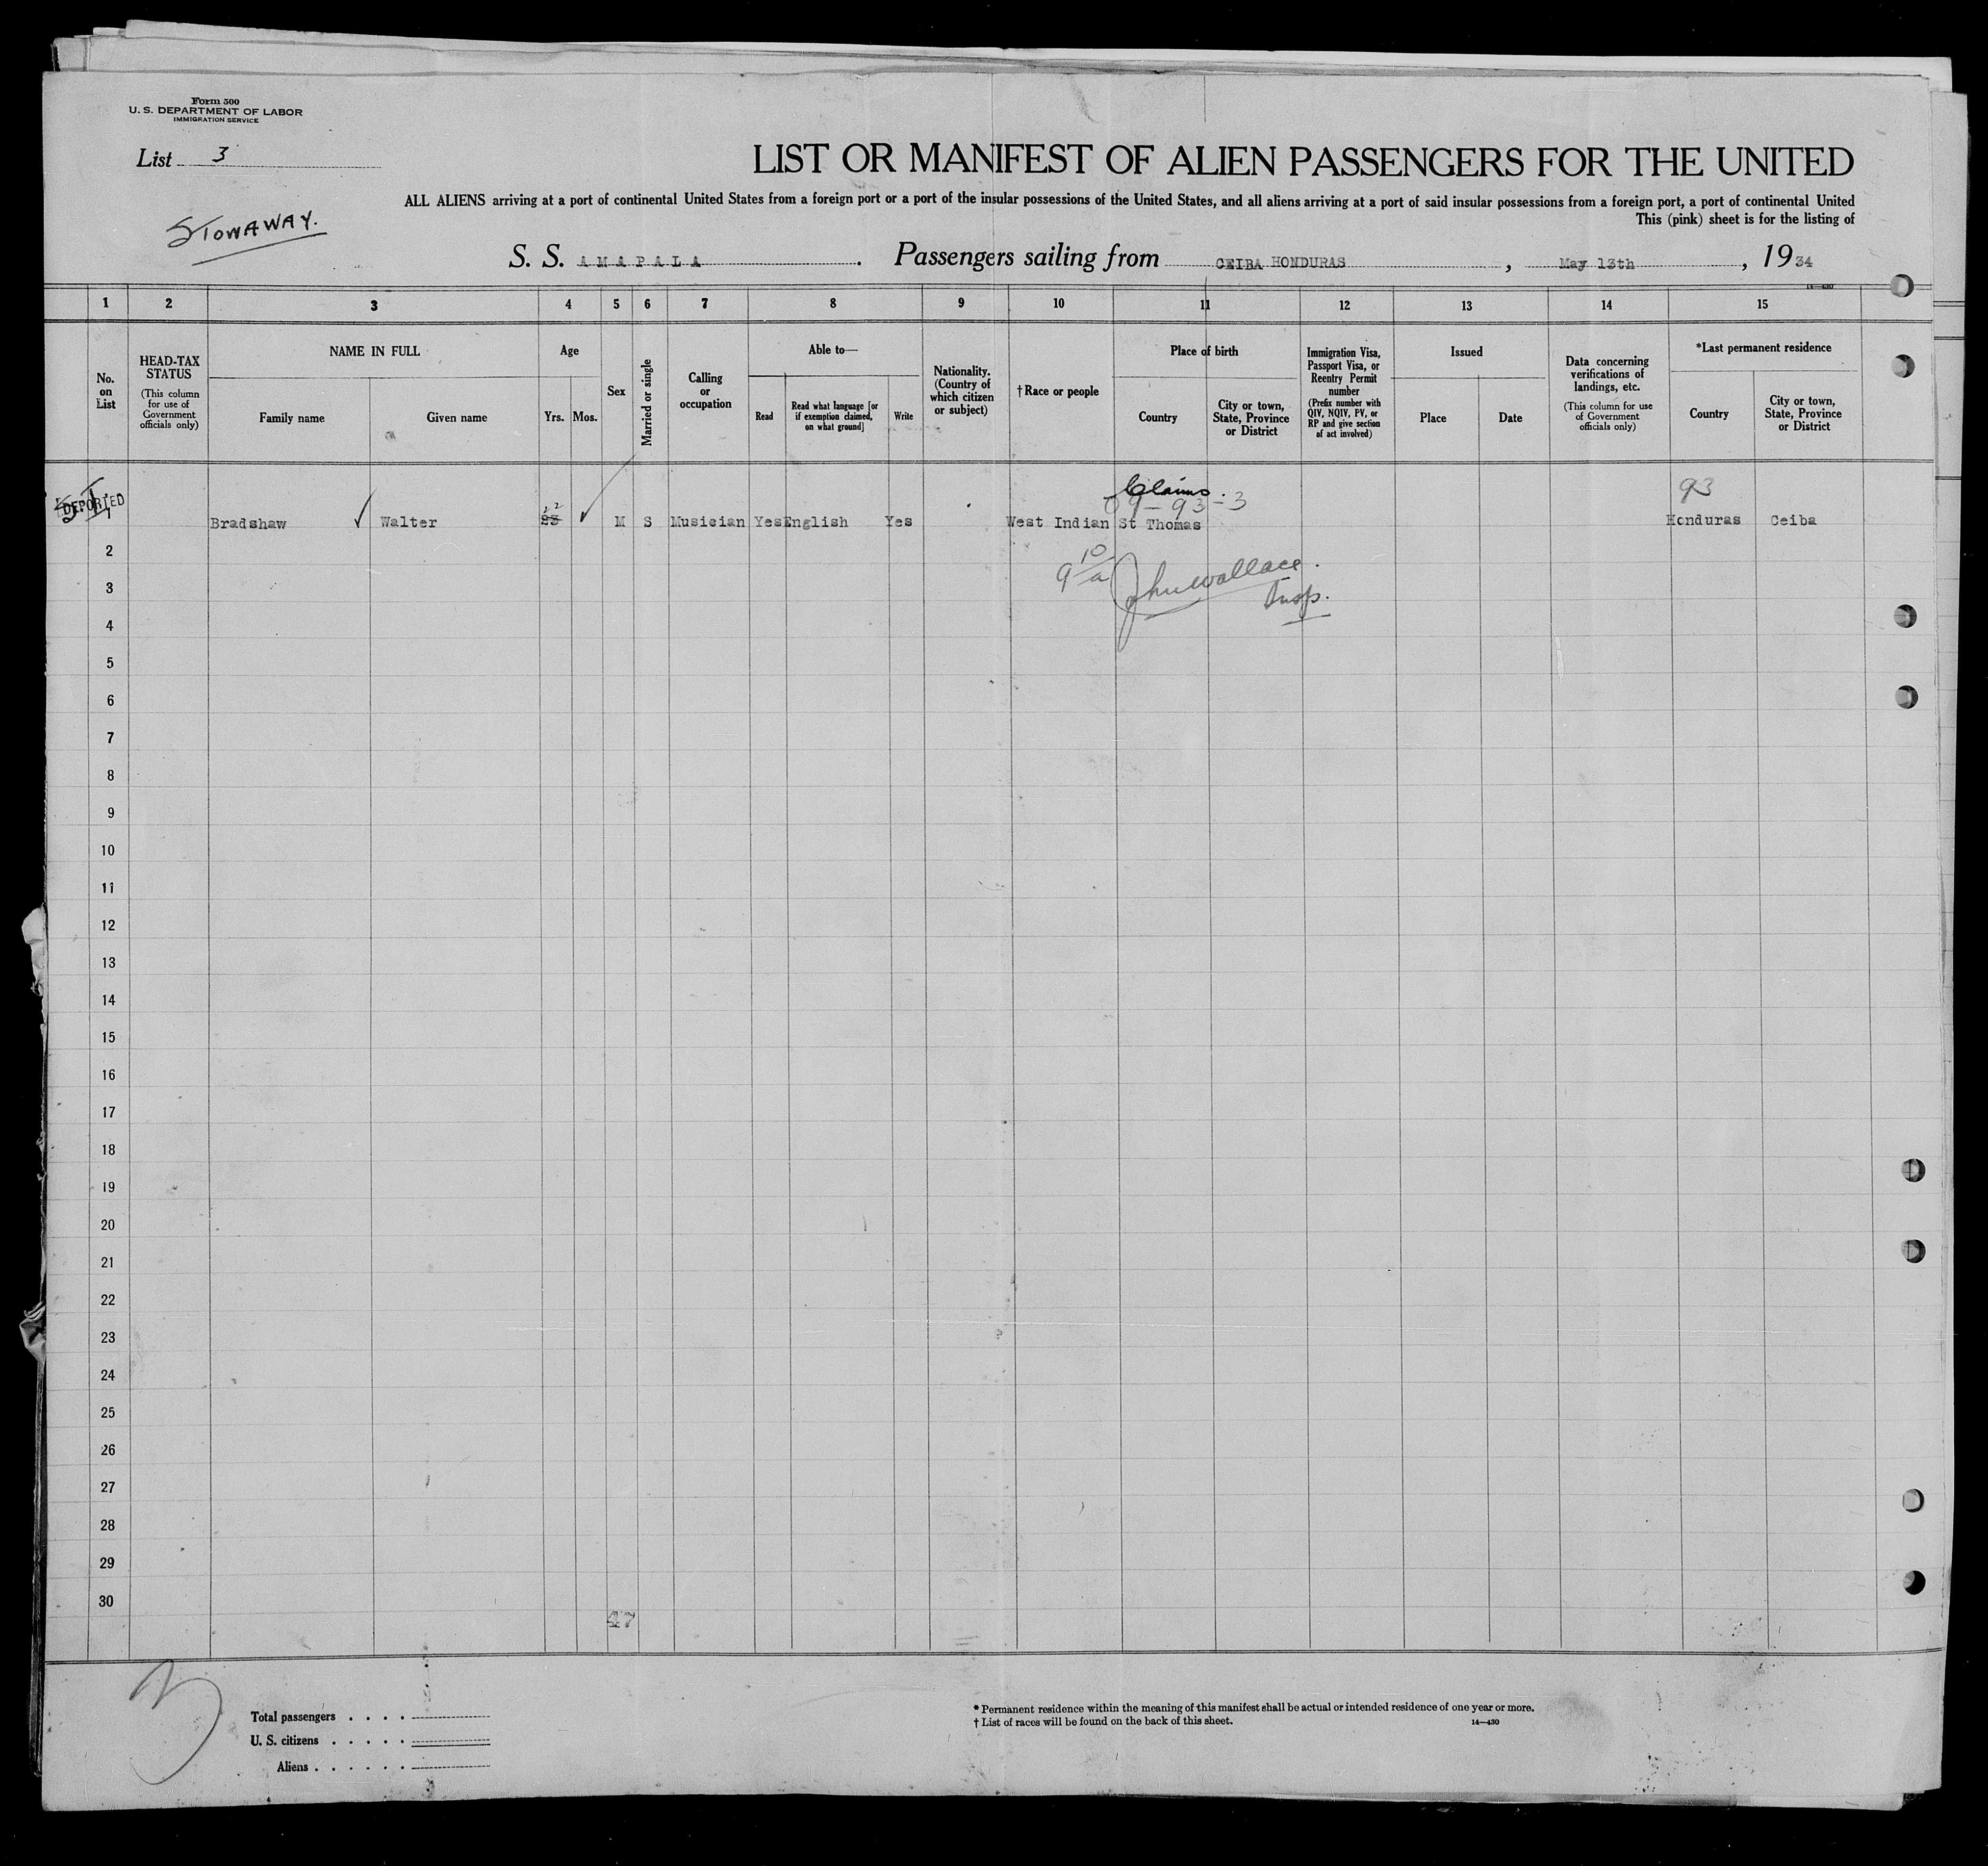 Form 500
U. S. DEPARTMENT OF LABOR
IMMIGRATION SERVICE
List 3
LIST OR MANIFEST OF ALIEN PASSENGERS FOR THE UNITED
ALL ALIENS arriving at a port of continental United States from a foreign port or a port of the insular possessions of the United States, and all aliens arriving at a port of said insular possessions from a foreign port, a port of continental United
This (pink) sheet is for the listing of
STOWAWAY.
S. S. AMAPALA. Passengers sailing from CEIBA HONDURAS, May 13th, 1934
14—430
1 2 3 4 5 6 7 8 9 10 11 12 13 14 15
No. on List
HEAD-TAX STATUS
(This column for use of Government officials only)
NAME IN FULL
Family name
Given name
Age
Yrs.
Mos.
Sex
Married or single
Calling or occupation
Able to—
Read
Read what language [or if exemption claimed, on what ground]
Write
Nationality. (Country of which citizen or subject)
† Race or people
Place of birth
Country
City or town, State, Province or District
Immigration Visa, Passport Visa, or Reentry Permit number
(Prefix number with QIV, NQIV, PV, or RP and give section of act involved)
Issued
Place
Date
Data concerning verifications of landings, etc.
(This column for use of Government officials only)
*Last permanent residence
Country
City or town, State, Province or District
Claims.
09-93-3
93
DEPORTED
Bradshaw Walter 23 M S Musician Yes English Yes West Indian St Thomas Honduras Ceiba
2
9 10/a John Wallace.
3
Insp.
4
5
6
7
8
9
10
11
12
13
14
15
16
17
18
19
20
21
22
23
24
25
26
27
28
29
30
47
3
Total passengers . . . .
U. S. citizens . . . . .
Aliens . . . . . .
* Permanent residence within the meaning of this manifest shall be actual or intended residence of one year or more.
† List of races will be found on the back of this sheet.
14—430